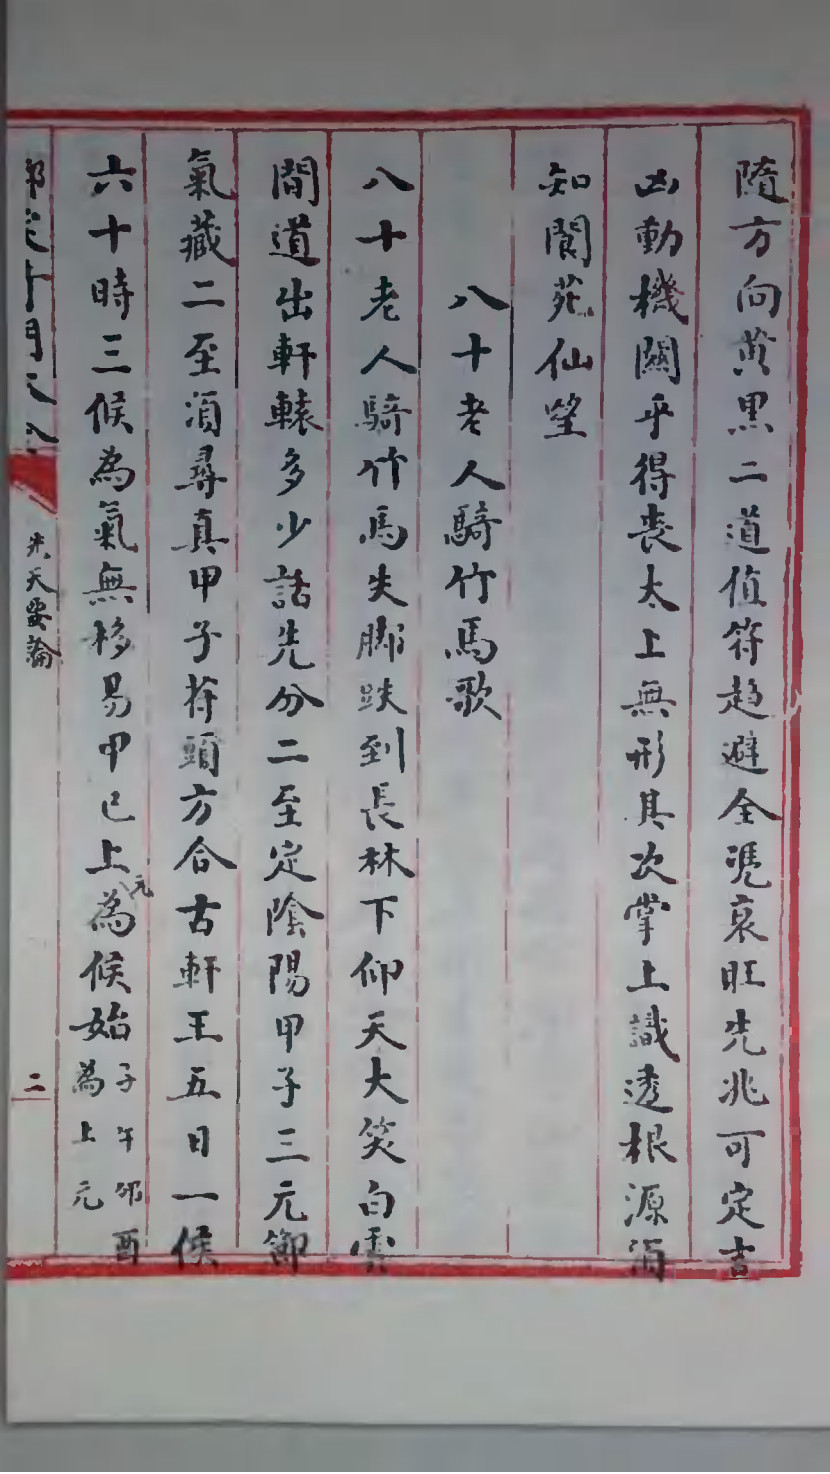 隨方向黃黑二道值符趋避全凴衰旺先兆可定吉
凶動機關乎得丧太上無形其次掌上識透根源須
知閬苑仙堃
八十老人騎竹馬歌
八十老人騎竹馬失脚跌到長林下仰天大笑白雲
間道出軒轅多少話先分二至定陰陽甲子三元節
氣藏二至須尋真甲子符頭方合古軒王五日一候
六十時三候為氣無移易甲己上元為候始子午卯酉為上元
先天要論
二